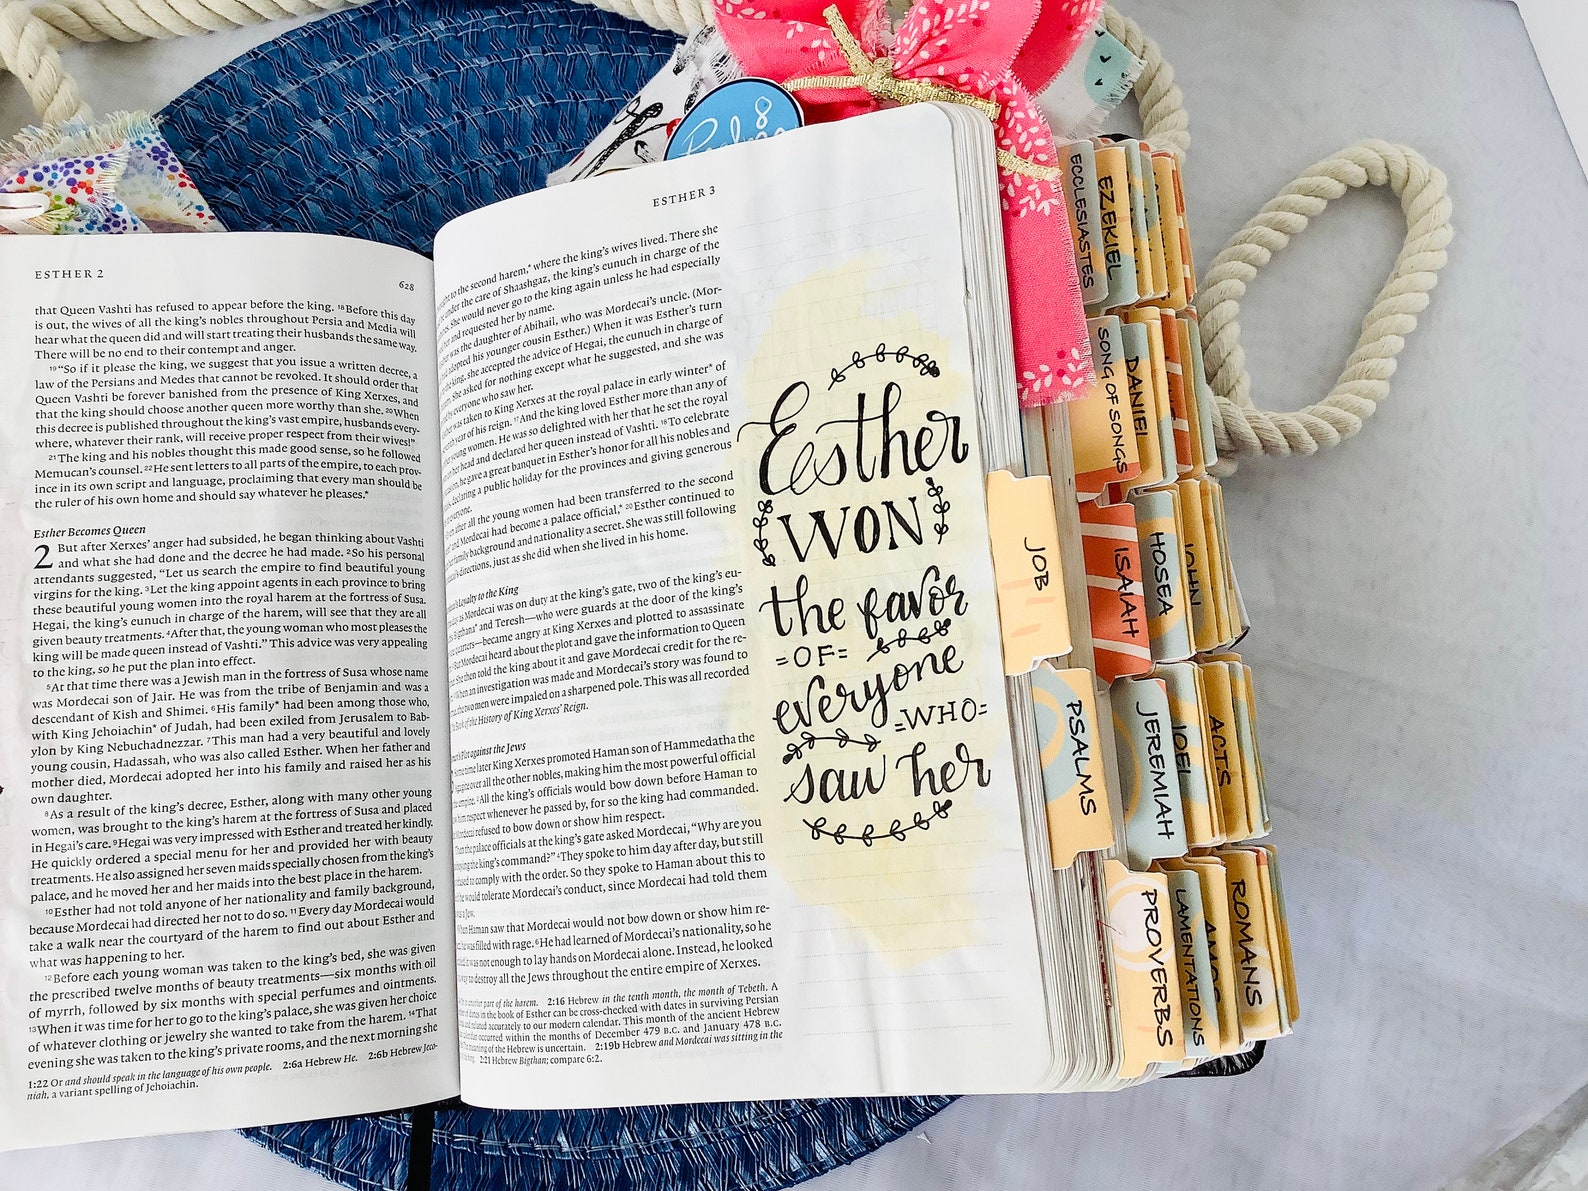 ESTHER 2
628
that Queen Vashti has refused to appear before the king. 18 Before this day
is out, the wives of all the king's nobles throughout Persia and Media will
hear what the queen did and will start treating their husbands the same way.
There will be no end to their contempt and anger.
19 “So if it please the king, we suggest that you issue a written decree, a
law of the Persians and Medes that cannot be revoked. It should order that
Queen Vashti be forever banished from the presence of King Xerxes, and
that the king should choose another queen more worthy than she. 20 When
this decree is published throughout the king's vast empire, husbands every-
where, whatever their rank, will receive proper respect from their wives!”
21 The king and his nobles thought this made good sense, so he followed
Memucan's counsel. 22 He sent letters to all parts of the empire, to each prov-
ince in its own script and language, proclaiming that every man should be
the ruler of his own home and should say whatever he pleases.*
Esther Becomes Queen
2 But after Xerxes' anger had subsided, he began thinking about Vashti
and what she had done and the decree he had made. 2 So his personal
attendants suggested, “Let us search the empire to find beautiful young
virgins for the king. 3 Let the king appoint agents in each province to bring
these beautiful young women into the royal harem at the fortress of Susa.
Hegai, the king's eunuch in charge of the harem, will see that they are all
given beauty treatments. 4 After that, the young woman who most pleases the
king will be made queen instead of Vashti.” This advice was very appealing
to the king, so he put the plan into effect.
5 At that time there was a Jewish man in the fortress of Susa whose name
was Mordecai son of Jair. He was from the tribe of Benjamin and was a
descendant of Kish and Shimei. 6 His family* had been among those who,
with King Jehoiachin* of Judah, had been exiled from Jerusalem to Bab-
ylon by King Nebuchadnezzar. 7 This man had a very beautiful and lovely
young cousin, Hadassah, who was also called Esther. When her father and
mother died, Mordecai adopted her into his family and raised her as his
own daughter.
8 As a result of the king's decree, Esther, along with many other young
women, was brought to the king's harem at the fortress of Susa and placed
in Hegai's care. 9 Hegai was very impressed with Esther and treated her kindly.
He quickly ordered a special menu for her and provided her with beauty
treatments. He also assigned her seven maids specially chosen from the king's
palace, and he moved her and her maids into the best place in the harem.
10 Esther had not told anyone of her nationality and family background,
because Mordecai had directed her not to do so. 11 Every day Mordecai would
take a walk near the courtyard of the harem to find out about Esther and
what was happening to her.
12 Before each young woman was taken to the king's bed, she was given
the prescribed twelve months of beauty treatments—six months with oil
of myrrh, followed by six months with special perfumes and ointments.
13 When it was time for her to go to the king's palace, she was given her choice
of whatever clothing or jewelry she wanted to take from the harem. 14 That
evening she was taken to the king's private rooms, and the next morning she
1:22 Or and should speak in the language of his own people. 2:6a Hebrew He. 2:6b Hebrew Jeco-
niah, a variant spelling of Jehoiachin.
ESTHER 3
to the second harem,* where the king's wives lived. There she
under the care of Shaashgaz, the king's eunuch in charge of the
She would never go to the king again unless he had especially
and requested her by name.
was the daughter of Abihail, who was Mordecai's uncle. (Mor-
adopted his younger cousin Esther.) When it was Esther's turn
the king, she accepted the advice of Hegai, the eunuch in charge of
She asked for nothing except what he suggested, and she was
by everyone who saw her.
was taken to King Xerxes at the royal palace in early winter* of
year of his reign. 17 And the king loved Esther more than any of
young women. He was so delighted with her that he set the royal
on her head and declared her queen instead of Vashti. 18 To celebrate
he gave a great banquet in Esther's honor for all his nobles and
declaring a public holiday for the provinces and giving generous
everyone.
after all the young women had been transferred to the second
and Mordecai had become a palace official,* 20 Esther continued to
family background and nationality a secret. She was still following
directions, just as she did when she lived in his home.
Loyalty to the King
as Mordecai was on duty at the king's gate, two of the king's eu-
Bigthana* and Teresh—who were guards at the door of the king's
quarters—became angry at King Xerxes and plotted to assassinate
But Mordecai heard about the plot and gave the information to Queen
She then told the king about it and gave Mordecai credit for the re-
When an investigation was made and Mordecai's story was found to
the two men were impaled on a sharpened pole. This was all recorded
Book of the History of King Xerxes' Reign.
Plot against the Jews
Some time later King Xerxes promoted Haman son of Hammedatha the
over all the other nobles, making him the most powerful official
the empire. 2 All the king's officials would bow down before Haman to
him respect whenever he passed by, for so the king had commanded.
Mordecai refused to bow down or show him respect.
Then the palace officials at the king's gate asked Mordecai, “Why are you
the king's command?” 4 They spoke to him day after day, but still
refused to comply with the order. So they spoke to Haman about this to
he would tolerate Mordecai's conduct, since Mordecai had told them
was a Jew.
When Haman saw that Mordecai would not bow down or show him re-
he was filled with rage. 6 He had learned of Mordecai's nationality, so he
it was not enough to lay hands on Mordecai alone. Instead, he looked
way to destroy all the Jews throughout the entire empire of Xerxes.
another part of the harem. 2:16 Hebrew in the tenth month, the month of Tebeth. A
of dates in the book of Esther can be cross-checked with dates in surviving Persian
and related accurately to our modern calendar. This month of the ancient Hebrew
occurred within the months of December 479 B.C. and January 478 B.C.
The meaning of the Hebrew is uncertain. 2:19b Hebrew and Mordecai was sitting in the
2:21 Hebrew Bigthan; compare 6:2.
Esther
WON
the favor
=OF=
everyone
=WHO=
saw her
JOB
PSALMS
PROVERBS
ECCLESIASTES
SONG OF SONGS
ISAIAH
JEREMIAH
LAMENTATIONS
EZEKIEL
DANIEL
HOSEA
JOEL
AMOS
JOHN
ACTS
ROMANS